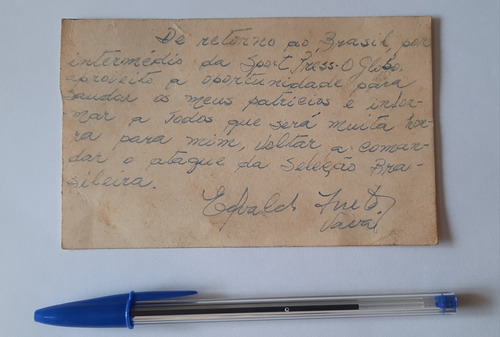 De retorno ao Brasil, por
intermédio da Sport Press-O Globo,
aproveito a oportunidade para
saudar os meus patricios e infor-
mar a todos que será muita hon-
ra para mim, voltar a coman-
dar o ataque da Seleção Bra-
sileira.
Edvaldo
Vavá